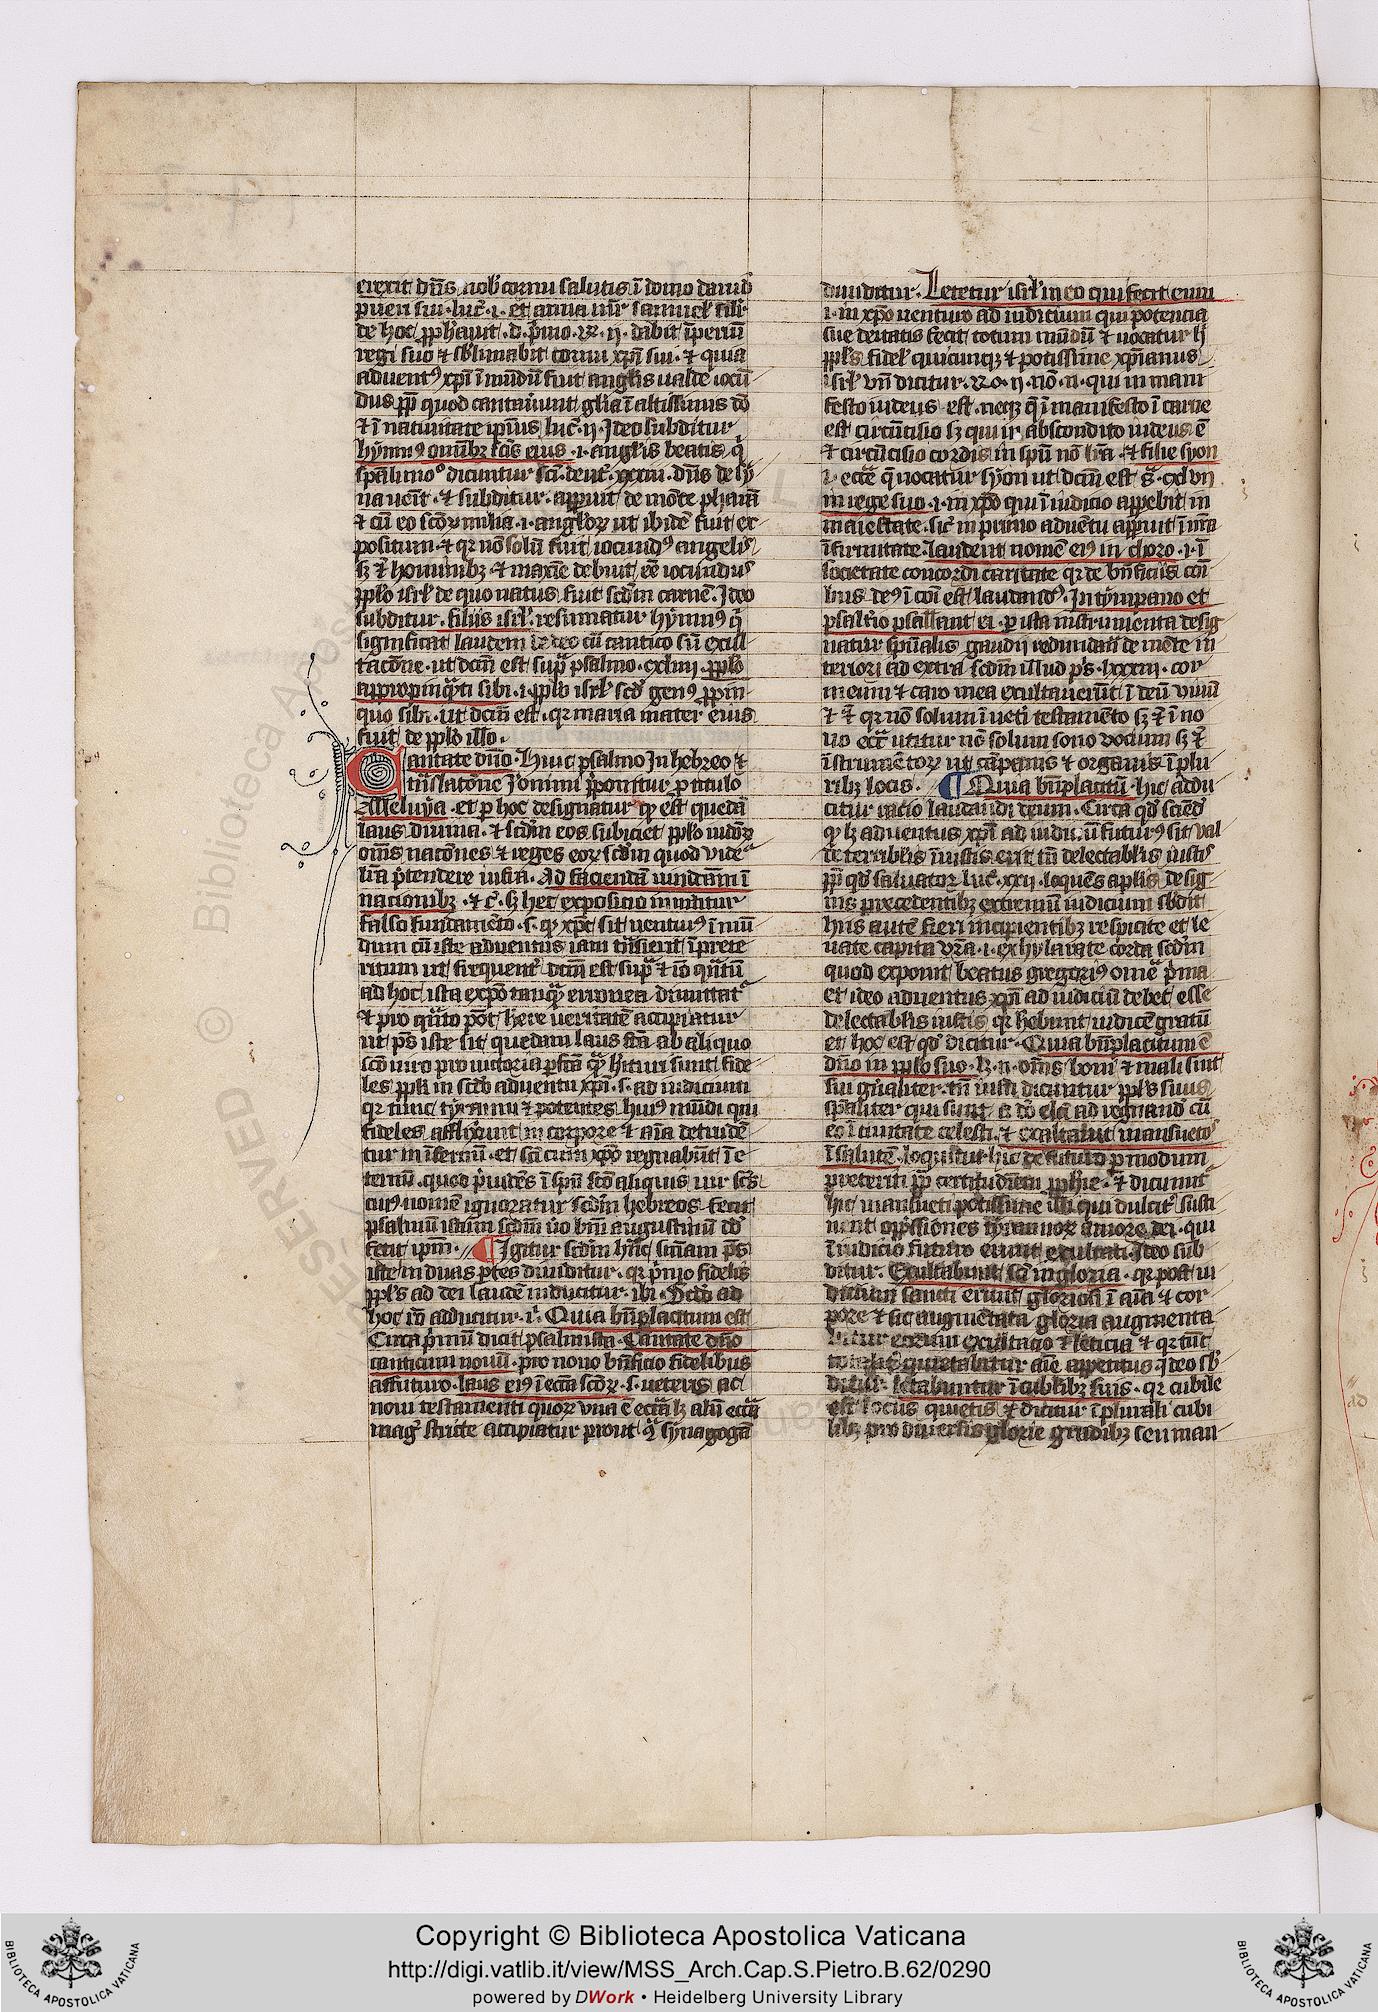 erexit dns nob cornu salutis i domo dauid
pueri sui. luc. i. et anna mr samuel simlr
de hoc pphauit. d. pmo. R. ii. dabit iperiu
regi suo & sblimabit cornu xpi sui. & quia
aduent9 xpi i mudu fuit anglis ualde iocu
dus pp quod cantauerunt glia i altissimis do
& i natiuitate ipius luc. ii. Ideo subditur
hymn9 omnibz scis eius. i. anglis beatis. q
dicuntur sci. deut. xxxiii. dns de sy
na uenit. & subditur. apparuit de mote phara
& cu eo scorum milia. i. anglorum ut ibide fuit ex
positum. & qr no solu fuit iocund9 angelis
sz & hominibz & maxie debuit ee iocundus
pplo isrl de quo natus fuit scdm carne. Ideo
subditur. filiis isrl. resumatur hymn9 q
significat laudem cu cantico siue exul
tacoe. ut dcm est sup psalmo. cxliiii. pplo
appropinquati sibi. i. pplo isrl scd gen9 ppin
quo sibi. ut dcm est. qr maria mater eius
fuit de pplo illo.
Cantate dno. Huic psalmo In hebreo &
translatoe Ieronimi pponitur p titulo
Alleluya. et p hoc designatur q est queda
laus diuina. & scdm eos subiciet pplo iudeorum
oms natoes & reges eorum scdm quod uidetur
lra ptendere infra. Ad facienda uindicam i
nacionibz. & c. sz hec exposicio innititur
falso fundameto. s. q xpc sit uentur9 i mu
dum cu iste aduentus iam transierit i prete
ritum ut frequent dcm est sup & io quatu
ad hoc ista expo tanq erronea dimittatur
& pro quato pot here ueritate accipiatur
ut ps iste sit quedam laus fca ab aliquo
sco uiro pro uictoria pfca qua hituri sunt fide
les ppli in scdo aduentu xpi. s. ad iudicium
qr tunc tyranni & potentes hui9 mundi qui
fideles afflixerunt in corpore & aia detrude
tur in infernu. et sci cum xpo regnabut i e
ternu. quod puides i spu sco aliquis uir scs
cui9 nomen ignoratur scdm hebreos fecit
psalmu istum scdm uo bm augustinu dd
fecit ipm. Igitur scdm hanc sniam ps
iste in duas ptes diuiditur. qr primo fidelis
ppls ad dei laude inducitur. ibi. Scdo ad
hoc ro adducitur. i. Quia bnplacitum est
Circa pmu dicit psalmista. Cantate dno
canticum nouu. pro nouo bnficio fidelibus
affuturo. laus ei9 i eccia scorum. s. ueteris ac
noui testamenti quorum una e eccia lz aliqn eccia
magis stricte accipiatur prout q synagoga
diuiditur. Letetur isrl in eo qui fecit eum
i. in xpo uenturo ad iudicium qui potencia
sue deitatis fecit totum mudu & uocatur h
ppls fidel quicunqz & potissime xpianus
isrl un dicitur. Ro. ii. no. n. qui in mani
festo iudeus est. neqz q i manifesto i carne
est circucisio sz qui i abscondito iudeus e
& circucisio cordis in spu no lra. & filie syon
i. eccie q uocatur syon ut dcm est. s. cxlvii
in rege suo. i. in xpo qui i iudicio apparebit in
maiestate. sic in primo aduentu apparuit i nra
ifirmitate. laudent nome ei9 in choro. i. i
societate concordi caritate qr de bnficiis coi
bus de9 i coi est laudand9. In tympano et
psalterio psallant ei. p ista instrumenta desig
natur spualis gaudii redundacia de mete in
teriori ad extra scdm illud ps. lxxxiii. cor
meum & caro mea exultauerut i deu uiuu
& qr no solum i ueteri testamento sz & i no
uo eccia utitur no solum sono uocum sz &
istrumetorum ut campanis & organis i plu
ribz locis. Quia bnplacitu. hic addu
citur racio laudandi deum. Circa qd sciend
q lz aduentus xpi ad iudiciu futur9 sit ual
de terribilis iniustis erit tn delectabilis iustis
pp qd saluator luc. xxii. loquens aplis desig
nis precedentibz extremu iudicium sbdit
hiis aute fieri incipientibz respicite et le
uate capita vra. i. exhylarate corda scdm
quod exponit beatus gregori9 omel pma
et ideo aduentus xpi ad iudiciu debet esse
delectabilis iustis qr hebunt iudice gratu
et hoc est qd dicitur. Quia bnplacitum e
dno in pplo suo. lz. n. oms boni & mali sint
sui generaliter. tn iusti dicuntur ppls suus
spaliter qui sunt a do electi ad regnand cu
eo i ciuitate celesti. & exaltabit mansuetos
i salute. loquitur hic de futuro p modum
preteriti pp certitudine pphie. & dicuntur
hic mansueti potissime isti qui dulciter susti
nent oppssiones tyrannorum amore dei. qui
i iudicio futuro erunt exultati. Ideo sub
ditur. Exultabunt sci in gloria. qr post iu
dicium sancti erunt gloriosi i aia & cor
pore & sic augmentata gloria augmenta
bitur eorum exultacio & leticia & qr tuc
totaliter quietabitur aie appetitus. Ideo sb
ditur. letabuntur i cubilibz suis. qr cubile
est locus quietis & dicitur i plurali cubi
libz pro diuersis glorie gradibz seu man
Copyright © Biblioteca Apostolica Vaticana
http://digi.vatlib.it/view/MSS_Arch.Cap.S.Pietro.B.62/0290
powered by DWork • Heidelberg University Library
BIBLIOTECA APOSTOLICA VATICANA
BIBLIOTECA APOSTOLICA VATICANA